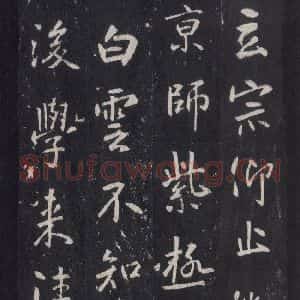 玄宗仰止
京師紫極
白雲不知
後學来
Shufawang.CN